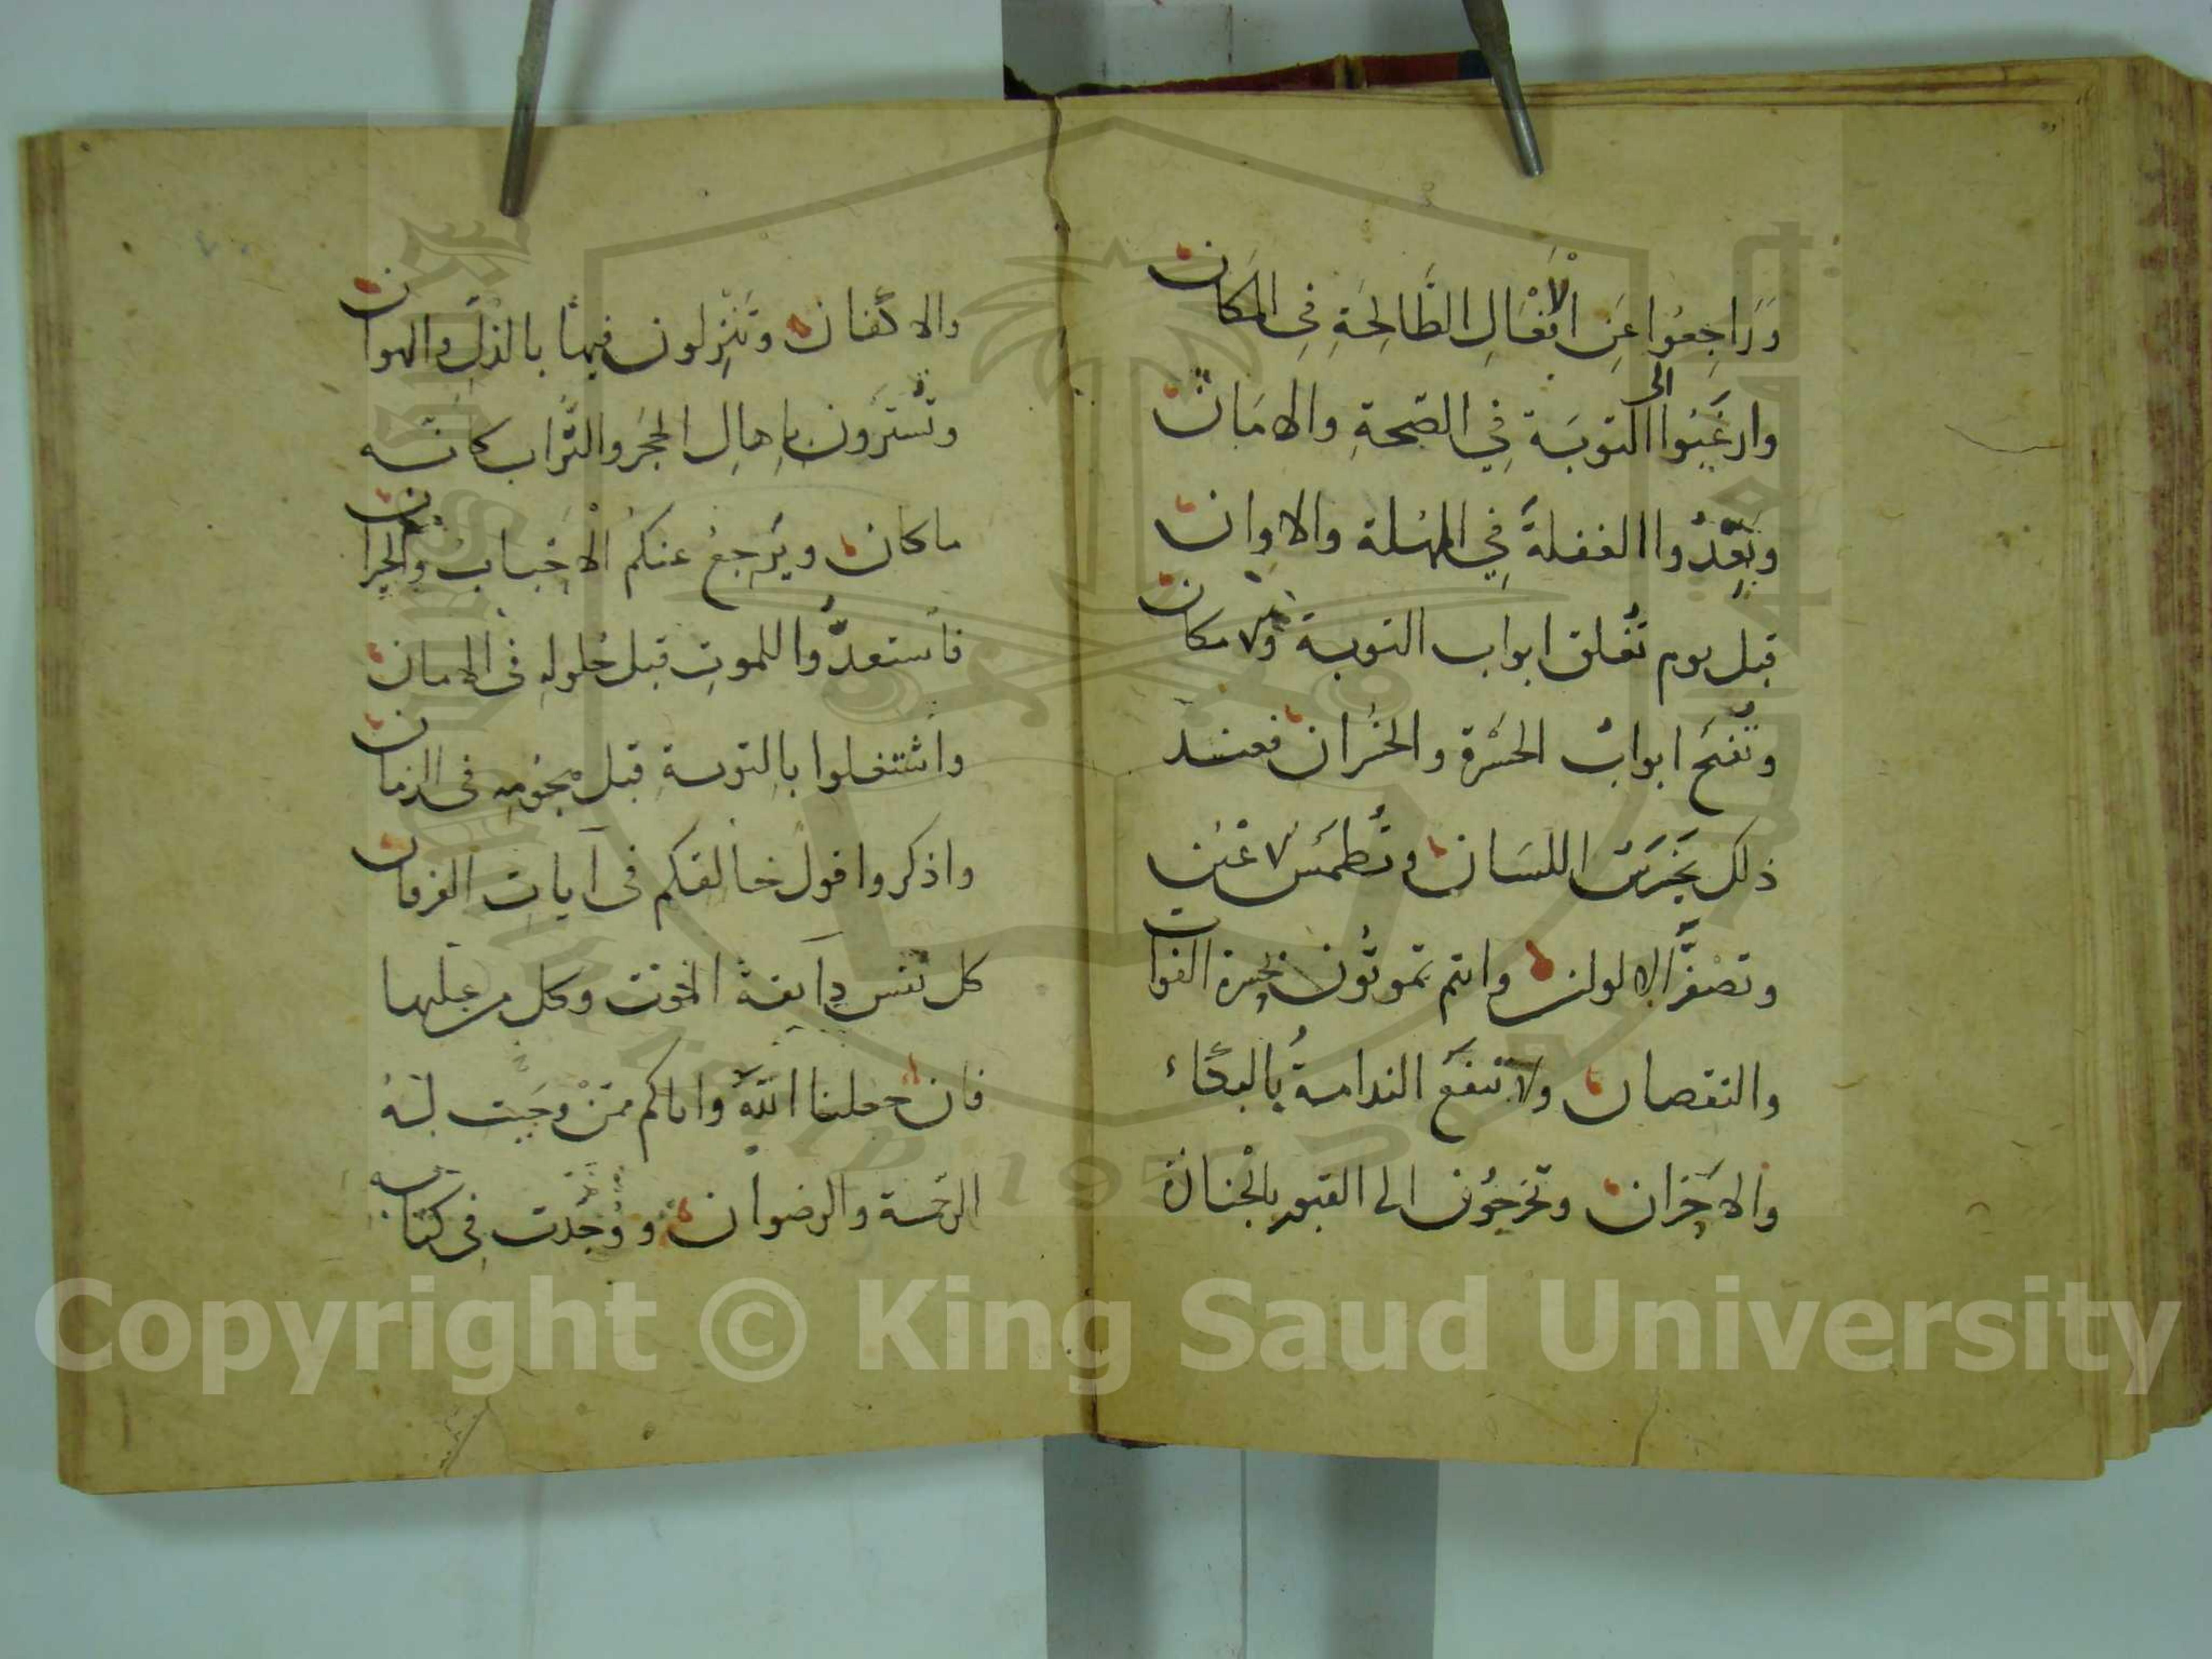 وَرَاجِعُوا عَنِ الْاَفْعَالِ الطَّالِحَةِ فِى المَكَان
وارغَبُوا الى التوبَة فِي الصّحةِ والامَان
وبَعِّدُوا الغفلةَ فِي المُهلة والاوان
قبل يوم تُغلق ابواب التوبة ولا مكان
وتُفتح ابوابُ الحسْرة والخُسران فعند
ذلك يَخْرَسُ اللسَان وتُطمَسُ الاعْيُن
وتصْفرُّ الالوان وانتم تموتُون بحسرة الفوات
والنقصان ولا تنفعَ الندامةُ بالبُكاء
والاحزان وتخرجُون الى القبور بالجنازة
والاكفان وتَنْزِلون فيها بالذِلّ والهوان
وتُسْترَون باهالِ الحجَر والتّراب كانّه
ماكان ويَرجعُ عنكمُ الْاحْبابُ والجيران
فاستعدُّوا للموتِ قبل حُلولهِ فى الامان
واشتغلوا بالتوبة قبل هجُومِهِ فى الزمان
واذكروا قول خالقكم فى آيات الفرقان
كل نفس ذآيقة الموت وكل من عليها
فان جعلنا اللّهُ واياكم ممّنْ وجَبت لهُ
الرحمة والرضوان ووُجُدت فِى كتابه
Copyright © King Saud University